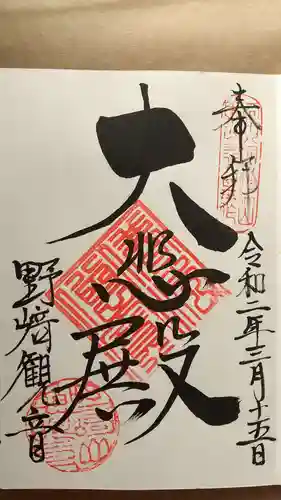 奉拝
令和二年三月十五日
大悲殿
野崎観音